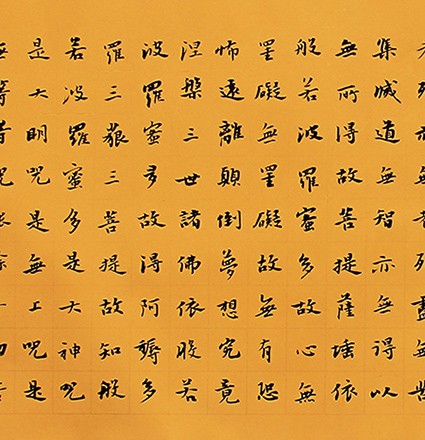 老死亦無老死盡無苦
集滅道無智亦無得以
無所得故菩提薩埵依
般若波羅蜜多故心無
罣礙無罣礙故無有恐
怖遠離顛倒夢想究竟
涅槃三世諸佛依般若
波羅蜜多故得阿耨多
羅三藐三菩提故知般
若波羅蜜多是大神咒
是大明咒是無上咒是
無等等咒能除一切苦